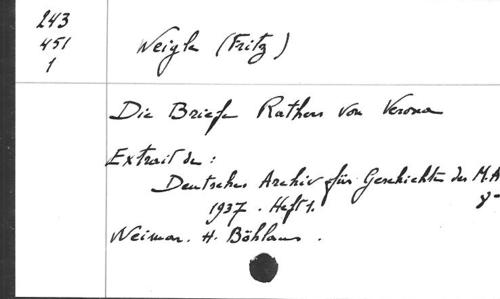 243
451
1
Weigle (Fritz)
Die Briefe Rathers von Verona
Extrait de :
Deutsches Archiv für Geschichte des M.A
1937. Heft 1.
Weimar. H. Böhlaus.